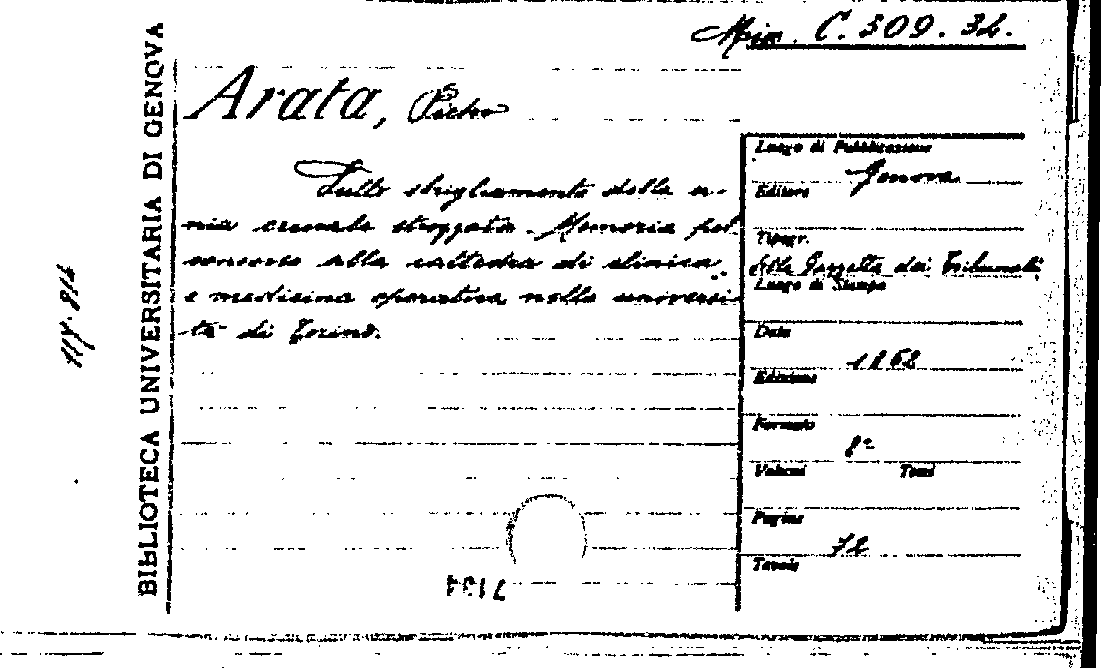 C. 309. 32.
Arata, Pietro
Sullo sbrigliamento della er-
nia crurale strozzata. Memoria pel
concorso alla cattedra di clinica
e medicina operativa nella universi-
tà di Torino.
Luogo di Pubblicazione
Genova
Editore
Tipogr.
della Gazzetta dei Tribunali
Luogo di Stampa
Data
1862
Edizione
Formato
8º
Volumi Tomi
Pagine
72
Tavole
BIBLIOTECA UNIVERSITARIA DI GENOVA